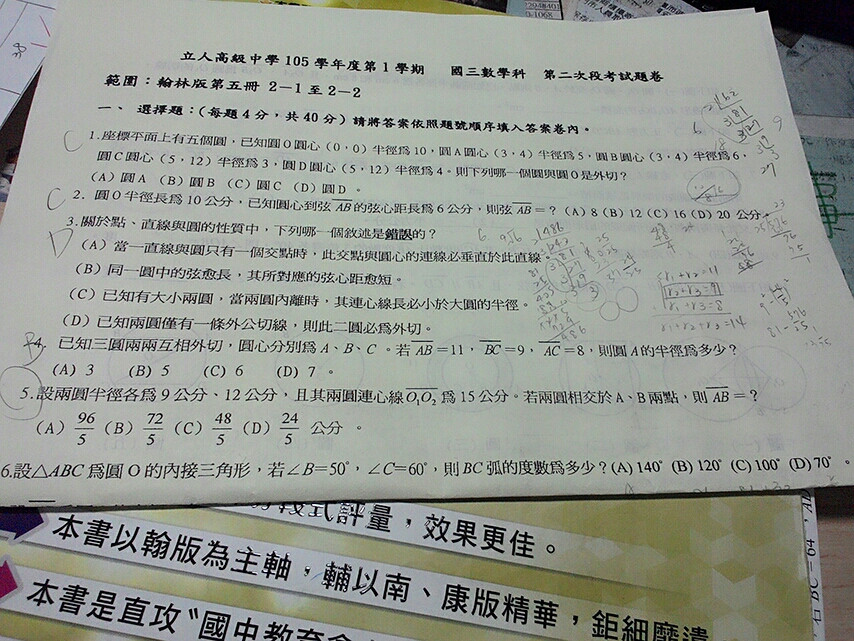 立人高級中學105學年度第1學期 國三數學科 第二次段考試題卷
範圍：翰林版第五冊 2－1 至 2－2
一、 選擇題：(每題4分，共40分) 請將答案依照題號順序填入答案卷內。
C 1.座標平面上有五個圓，已知圓O圓心（0，0）半徑為10，圓A圓心（3，4）半徑為5，圓B圓心（3，4）半徑為6，
圓C圓心（5，12）半徑為3，圓D圓心（5，12）半徑為4。則下列哪一個圓與圓O是外切？
（A）圓A （B）圓B （C）圓C （D）圓D 。
C 2. 圓O半徑長為10公分，已知圓心到弦AB的弦心距長為6公分，則弦AB＝？ (A) 8 (B) 12 (C) 16 (D) 20 公分
D 3.關於點、直線與圓的性質中，下列哪一個敘述是錯誤的？
（A）當一直線與圓只有一個交點時，此交點與圓心的連線必垂直於此直線。
（B）同一圓中的弦愈長，其所對應的弦心距愈短。
（C）已知有大小兩圓，當兩圓內離時，其連心線長必小於大圓的半徑。
（D）已知兩圓僅有一條外公切線，則此二圓必為外切。
B 4. 已知三圓兩兩互相外切，圓心分別為A、B、C。若AB＝11，BC＝9，AC＝8，則圓A的半徑為多少？
（A）3 （B）5 （C）6 （D）7 。
5.設兩圓半徑各為9公分、12公分，且其兩圓連心線O₁O₂為15公分。若兩圓相交於A、B兩點，則AB＝？
（A）96/5 （B）72/5 （C）48/5 （D）24/5 公分 。
6.設△ABC為圓O的內接三角形，若∠B=50°，∠C=60°，則BC弧的度數為多少？(A) 140° (B) 120° (C) 100° (D) 70° 。
段式評量，效果更佳。
本書以翰版為主軸，輔以南、康版精華，鉅細靡遺
本書是直攻〝國中教育會